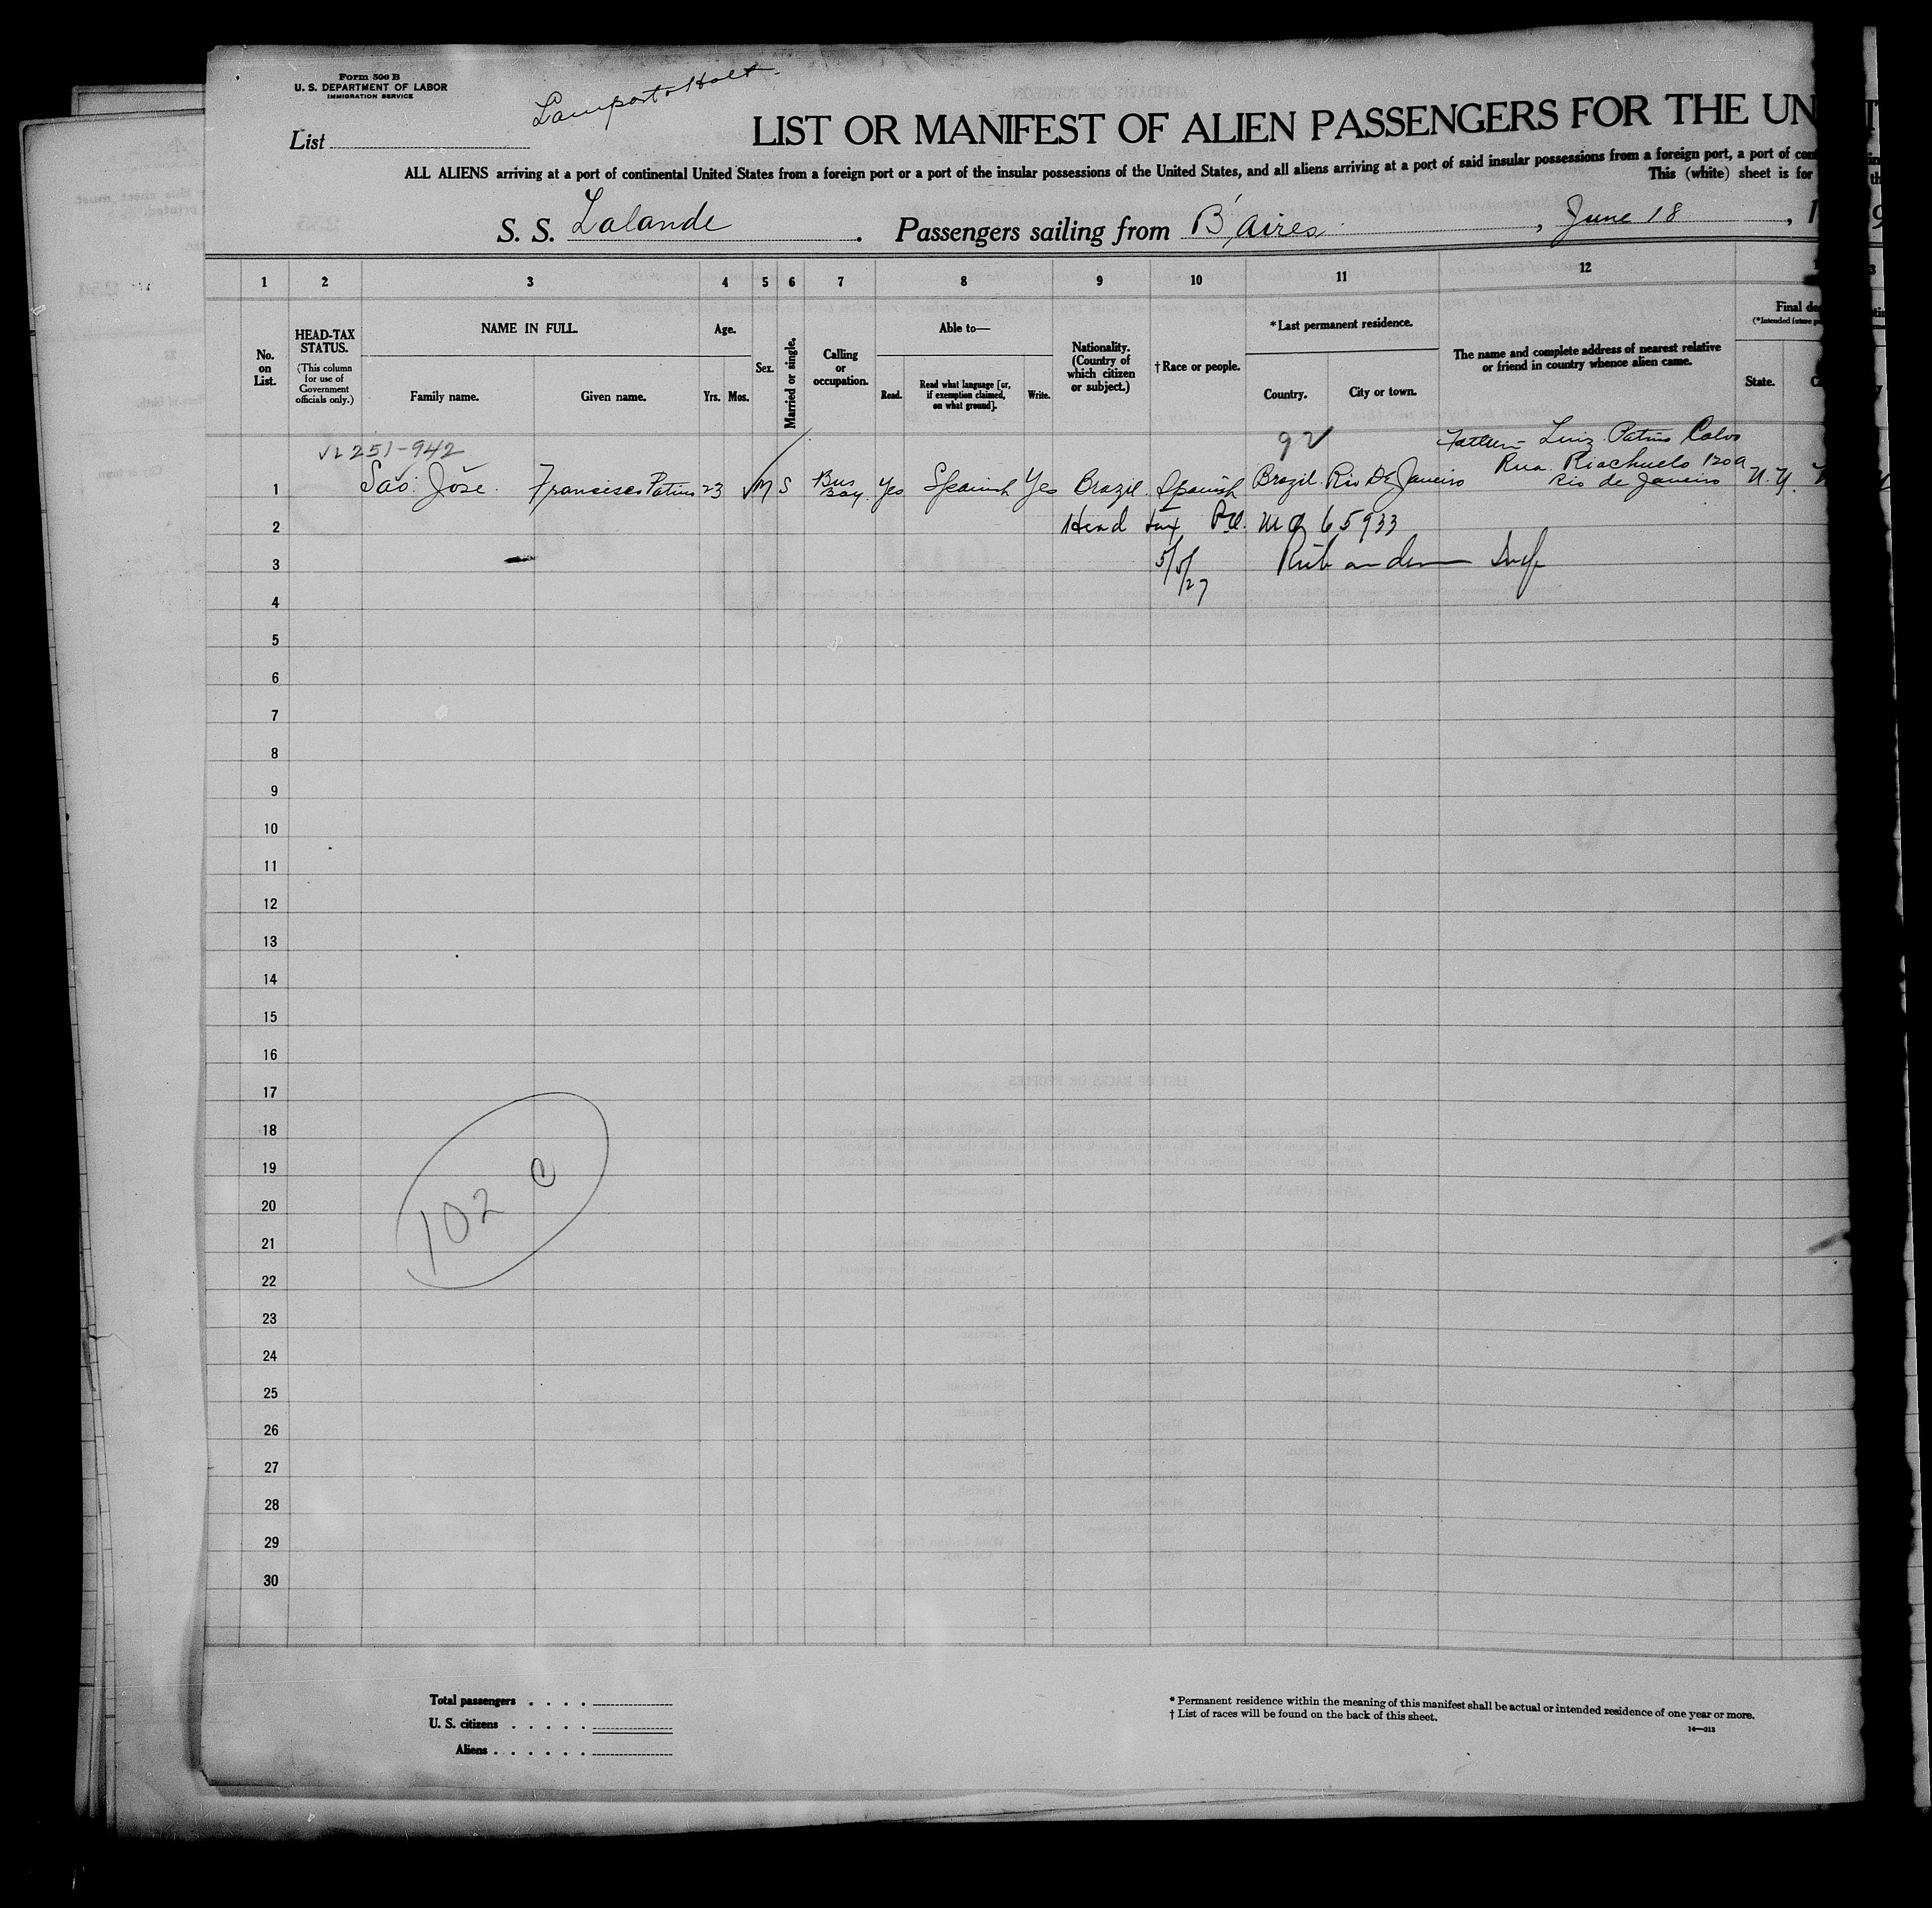 Form 500 B
U. S. DEPARTMENT OF LABOR
IMMIGRATION SERVICE
Lamport & Holt
List
LIST OR MANIFEST OF ALIEN PASSENGERS FOR THE UN
ALL ALIENS arriving at a port of continental United States from a foreign port or a port of the insular possessions of the United States, and all aliens arriving at a port of said insular possessions from a foreign port, a port of con
This (white) sheet is for
S. S. Lalande. Passengers sailing from B'Aires, June 18, 1
1 2 3 4 5 6 7 8 9 10 11 12
No. on List.
HEAD-TAX STATUS.
(This column for use of Government officials only.)
NAME IN FULL.
Family name. Given name.
Age.
Yrs. Mos.
Sex.
Married or single.
Calling or occupation.
Able to—
Read. Read what language [or, if exemption claimed, on what ground]. Write.
Nationality. (Country of which citizen or subject.)
† Race or people.
* Last permanent residence.
Country. City or town.
The name and complete address of nearest relative or friend in country whence alien came.
Final des
(*Intended future
State.
251-942
92
Father - Luiz Patino Calvo
Rua Riachuelo 120a
Rio de Janeiro
1 São José Francisco Patino 23 M S Bus Boy Yes Spanish Yes Brazil Spanish Brazil Rio De Janeiro N.Y.
2 Head tax Pd. 65933
3 5/5/27
4
5
6
7
8
9
10
11
12
13
14
15
16
17
18
19
20
21
22
23
24
25
26
27
28
29
30
102 C
Total passengers
U. S. citizens
Aliens
* Permanent residence within the meaning of this manifest shall be actual or intended residence of one year or more.
† List of races will be found on the back of this sheet.
14—213